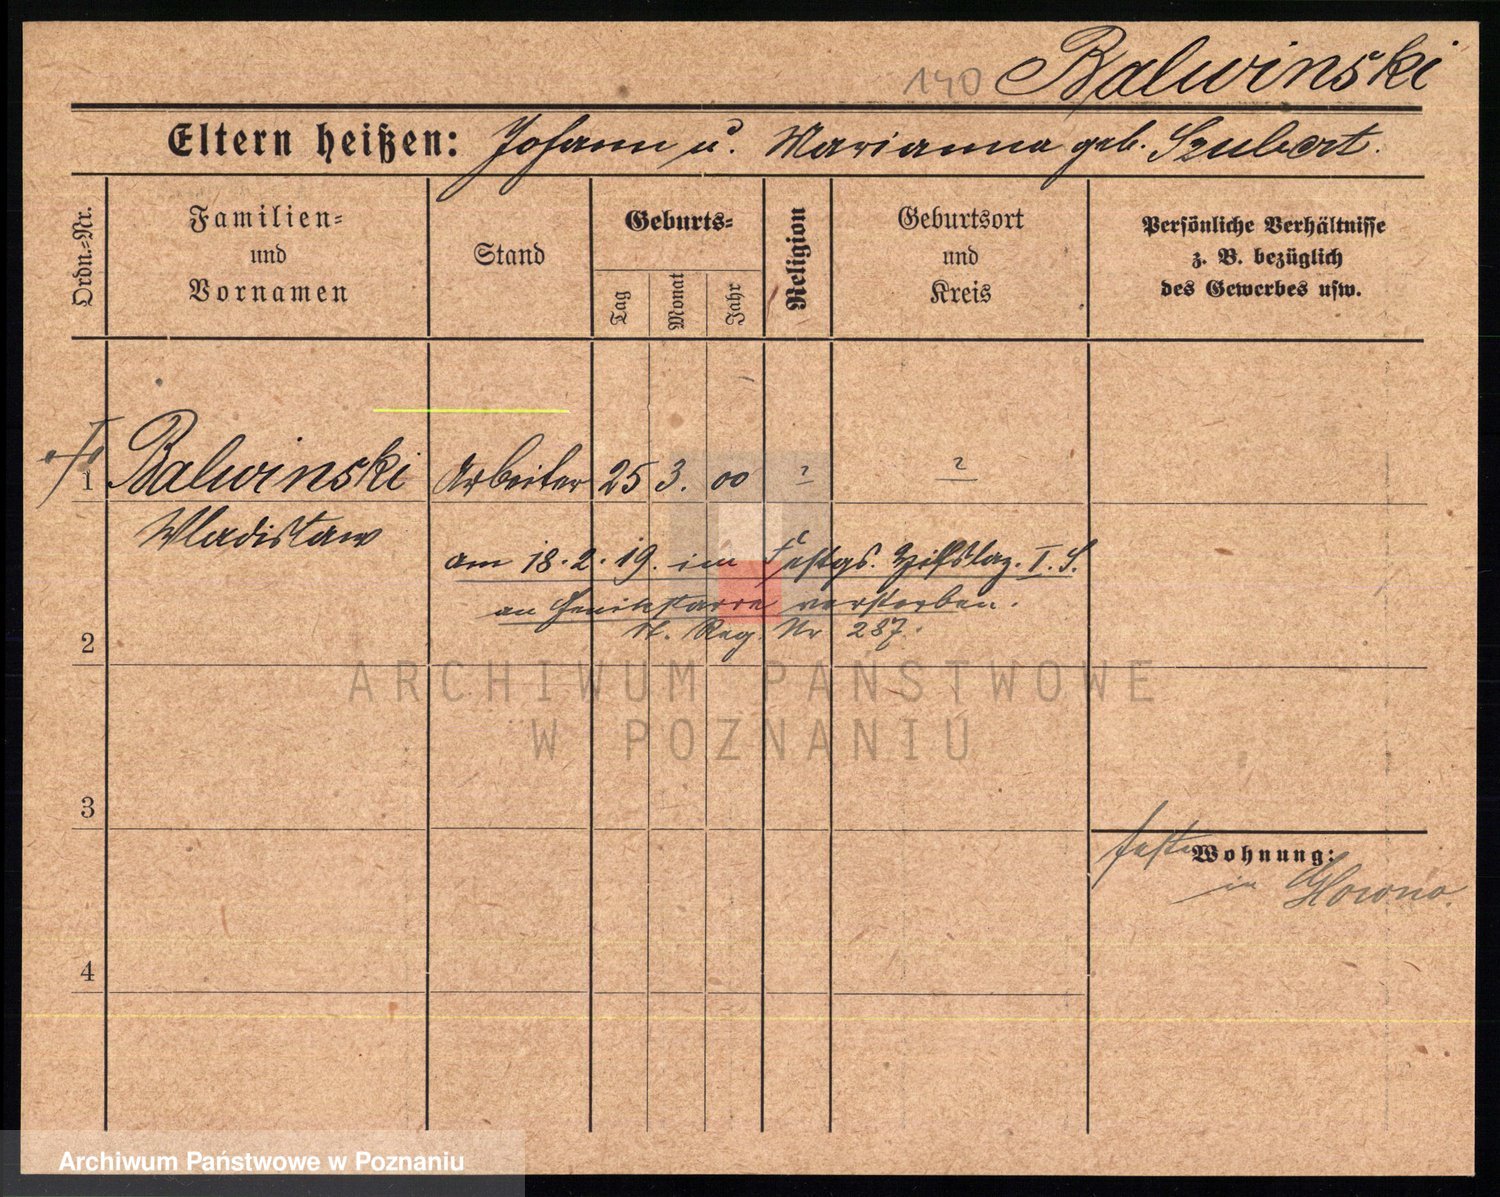 140 Balwinski
Eltern heißen: Johann u. Marianna geb. Szubert.
Ordn.=Nr.
Familien=
und
Vornamen
Stand
Geburts=
Tag
Monat
Jahr
Religion
Geburtsort
und
Kreis
Persönliche Verhältnisse
z. B. bezüglich
des Gewerbes usw.
1 Balwinski Arbeiter 25 3. 00 ? ?
Wladislaw
am 18.2.19. im Festgs. Hilfslaz. I. S.
an Genickstarre verstorben.
St. Reg. Nr 287.
2
ARCHIWUM PAŃSTWOWE
W POZNANIU
3
Wohnung:
in Glowno.
4
Archiwum Państwowe w Poznaniu